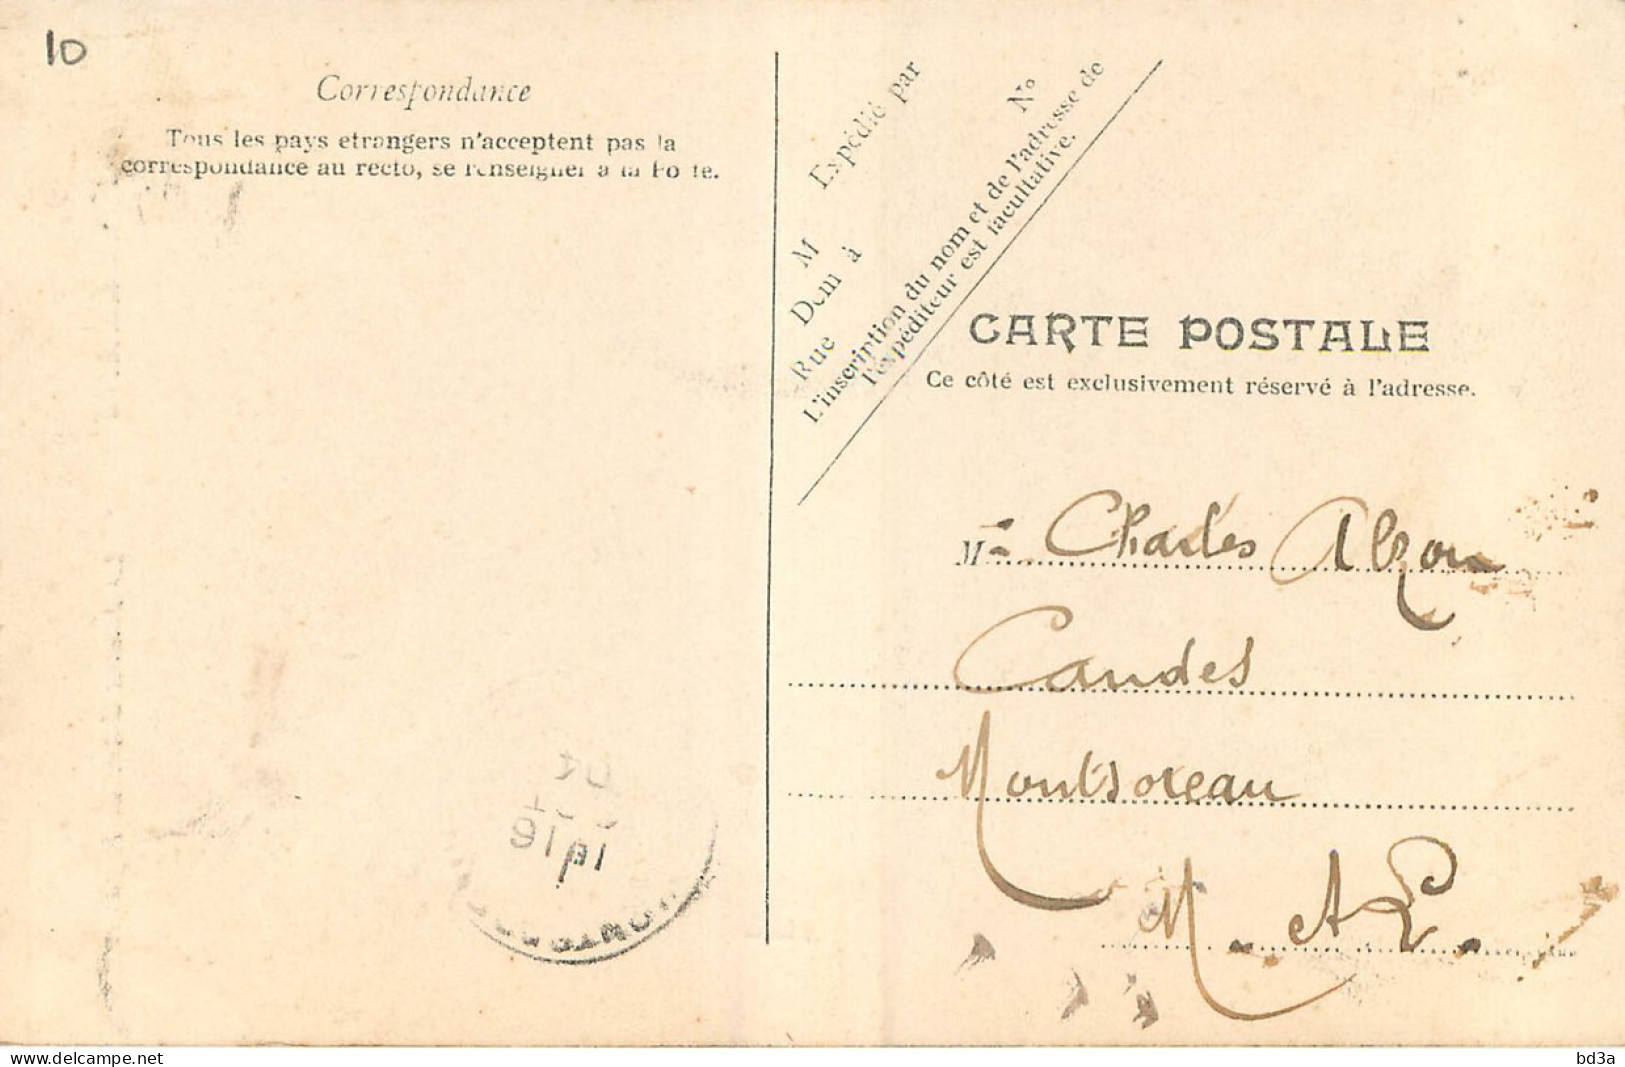 10
Correspondance
Tous les pays etrangers n'acceptent pas la
correspondance au recto, se renseigner à la Poste.
Expédié par
M
Dem à
Rue Nº
L'inscription du nom et de l'adresse de
l'expéditeur est facultative.
CARTE POSTALE
Ce côté est exclusivement réservé à l'adresse.
M Charles Alzon
Candes
Montsoreau
M. et L.
delcampe.net
bd3a